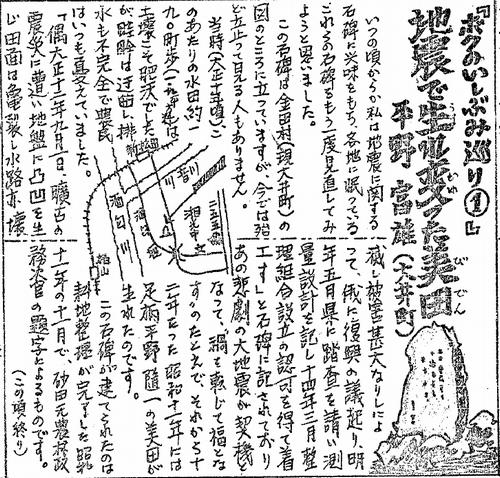 『ボクのいしぶみ巡り①』
地震で生れ変った美田
びでん
平野 富雄 (大井町)
いつの頃からか私は地震に関する
石碑に興味をもち、各地に眠っている
これらの石碑をもう一度見直してみ
ようと思いました。
この石碑は金田村(現大井町)の
図のところに立っていますが、今では殆
ど立止って見る人もありません。
当時(大正十五年頃)こ
のあたりの水田約一
九〇町歩は
土壌こそ肥沃でした
が畦畔は迂曲し、排
水も不完全で農民
はいつも憂えていました。
『偶大正十二年九月一日、曠古の
震災に遭い地盤に凸凹を生
じ田面は亀裂し水路亦壊
滅し被害甚大なりしによ
って、俄に復興の議起り、明
年五月県に踏査を請い測
量設計を記し十四年三月整
理組合設立の認可を得て着
工す』と石碑に記されており
あの悲劇の大地震が契機と
なって、"禍を転じて福とな
す"のたとえで、それから十
二年たった昭和十一年には
足柄平野随一の美田が
生れたのです。
この石碑が建てられたのは
耕地整理が完了した昭和
十一年の十一月で、砂田元農林政
務次官の題字によるものです。
(この項終り)
新松田
川音川
酒匂川
二五五号
湘光中